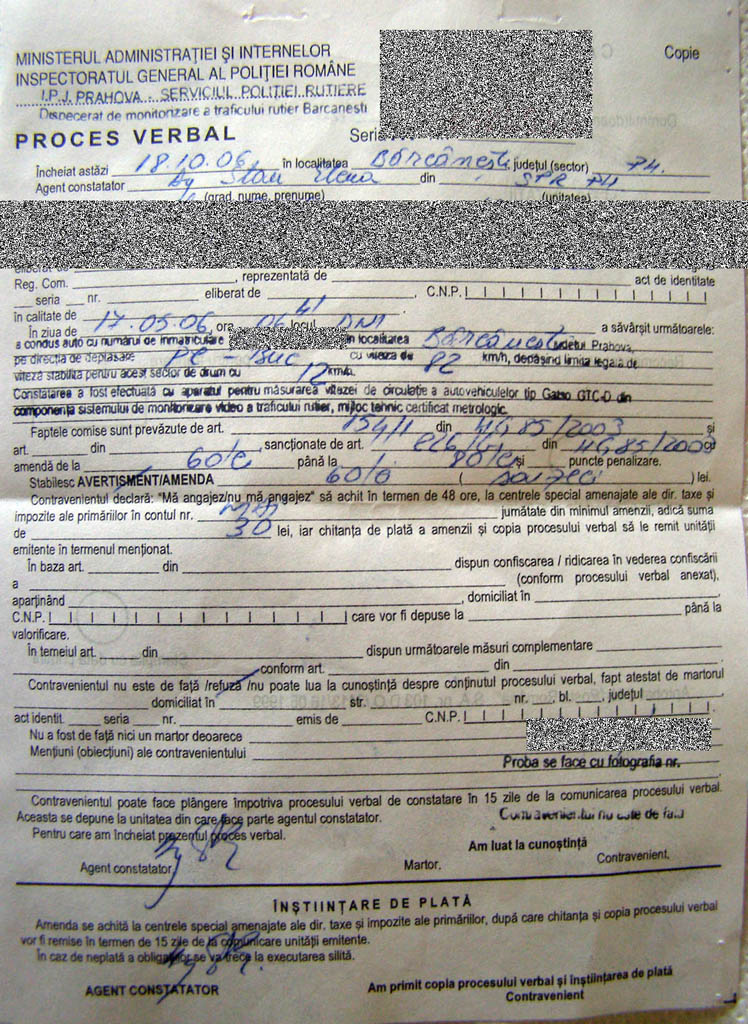 MINISTERUL ADMINISTRAŢIEI ŞI INTERNELOR
Copie
INSPECTORATUL GENERAL AL POLIŢIEI ROMÂNE
I.P.J. PRAHOVA SERVICIUL POLIŢIEI RUTIERE
Dispecerat de monitorizare a traficului rutier Barcanesti
PROCES VERBAL Seria
Încheiat astăzi 18.10.06 în localitatea Bărcăneşti judeţul (sector) PH.
Agent constatator Ag Stan Elena din SPR PH
(grad, nume, prenume) (unitatea)
eliberat de
Reg. Com. , reprezentată de act de identitate
seria nr. eliberat de C.N.P.
în calitate de
În ziua de 17.05.06 ora locul DN1 a săvârşit următoarele:
a condus auto cu numărul de înmatriculare în localitatea Bărcăneşti judetul Prahova,
pe direcţia de deplasare - Buc cu viteza de 82 km/h, depăşind limita legală de
viteză stabilită pentru acest sector de drum cu 12 km/h.
Constatarea a fost efectuată cu aparatul pentru măsurarea vitezei de circulaţie a autovehiculelor tip Gatso GTC-D din
componenţa sistemului de monitorizare video a traficului rutier, mijloc tehnic certificat metrologic.
Faptele comise sunt prevăzute de art. 154/1 din HG 85/2003 şi
art. din , sancţionate de art. din HG 85/2003 cu
amendă de la până la şi puncte penalizare.
Stabilesc AVERTISMENT/AMENDA ( ) lei.
Contravenientul declară: "Mă angajez/nu mă angajez" să achit în termen de 48 ore, la centrele special amenajate ale dir. taxe şi
impozite ale primăriilor în contul nr. jumătate din minimul amenzii, adică suma
de 30 lei, iar chitanţa de plată a amenzii şi copia procesului verbal să le remit unităţii
emitente în termenul menţionat.
În baza art. din dispun confiscarea / ridicarea în vederea confiscării
a (conform procesului verbal anexat),
aparţinând , domiciliat în
C.N.P. care vor fi depuse la până la
valorificare.
În temeiul art. din dispun următoarele măsuri complementare
conform art. din
Contravenientul nu este de faţă /refuză /nu poate lua la cunoştinţă despre conţinutul procesului verbal, fapt atestat de martorul
domiciliat în str. nr. , bl. , judeţul
act identit. seria nr. emis de C.N.P.
Nu a fost de faţă nici un martor deoarece
Menţiuni (obiecţiuni) ale contravenientului
Proba se face cu fotografia nr.
Contravenientul poate face plângere împotriva procesului verbal de constatare în 15 zile de la comunicarea procesului verbal.
Aceasta se depune la unitatea din care face parte agentul constatator.
Contravenientul nu este de fata
Pentru care am încheiat prezentul proces verbal.
Am luat la cunoştinţă
Agent constatator, Martor. Contravenient.
ÎNŞTIINŢARE DE PLATĂ
Amenda se achită la centrele special amenajate ale dir. taxe şi impozite ale primăriilor, după care chitanţa şi copia procesului verbal
vor fi remise în termen de 15 zile de la comunicare unităţii emitente.
În caz de neplată a obligaţiilor se va trece la executarea silită.
AGENT CONSTATATOR
Am primit copia procesului verbal şi înştiinţarea de plată
Contravenient